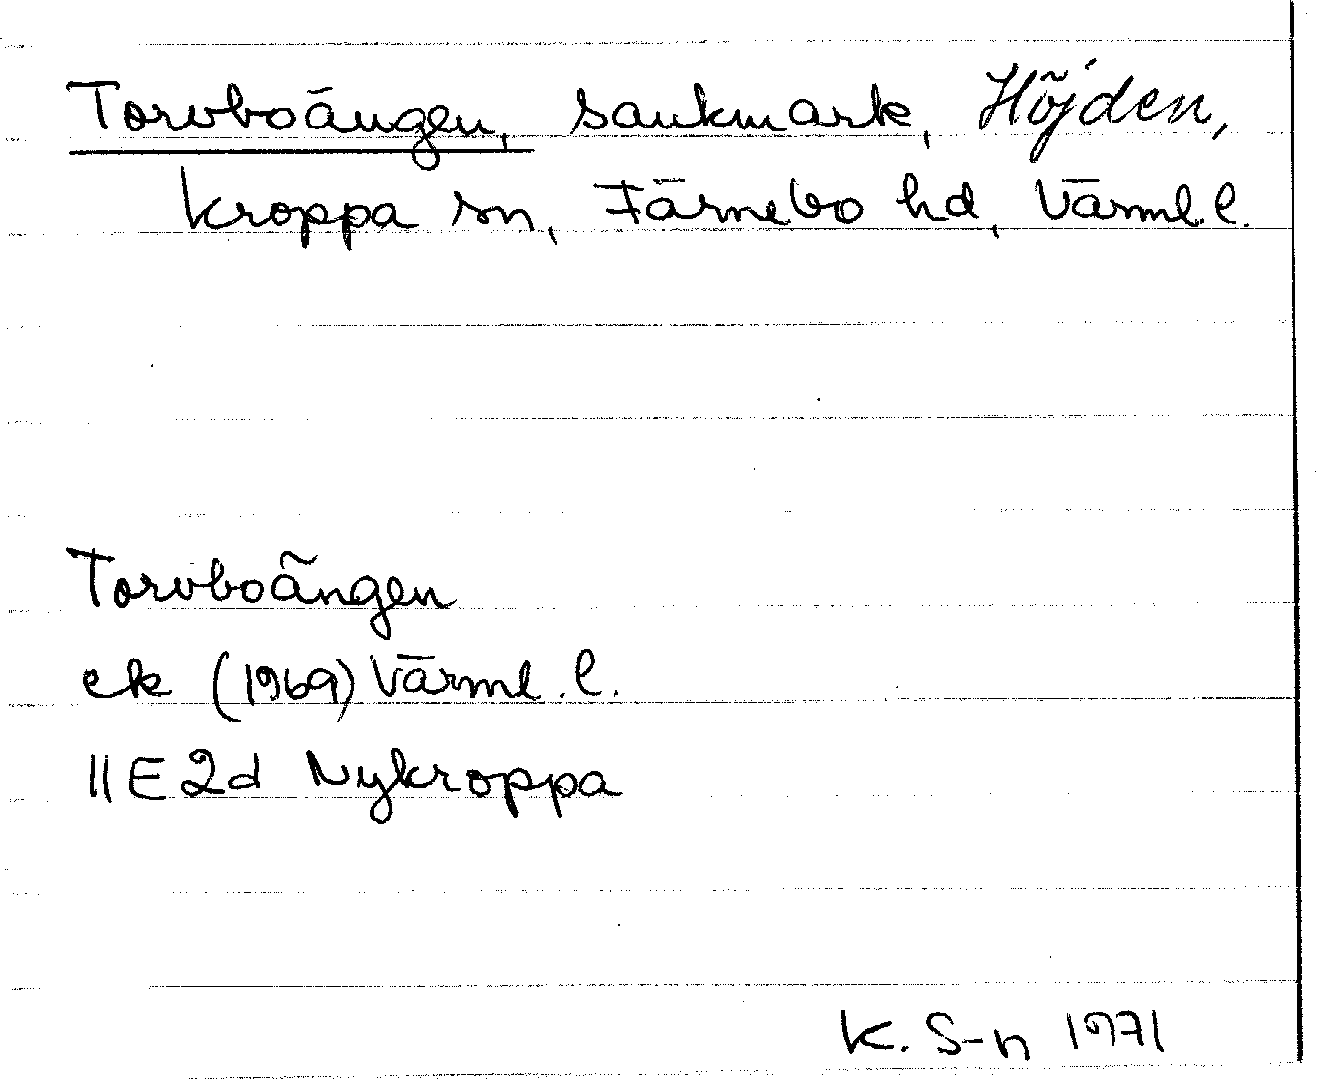 Torvboängen, sankmark, Höjden,
Kroppa sn, Färnebo hd, Värml. l.
Torvboängen
ek (1969) Värml. l.
11E2d Nykroppa
K. S-n 1971